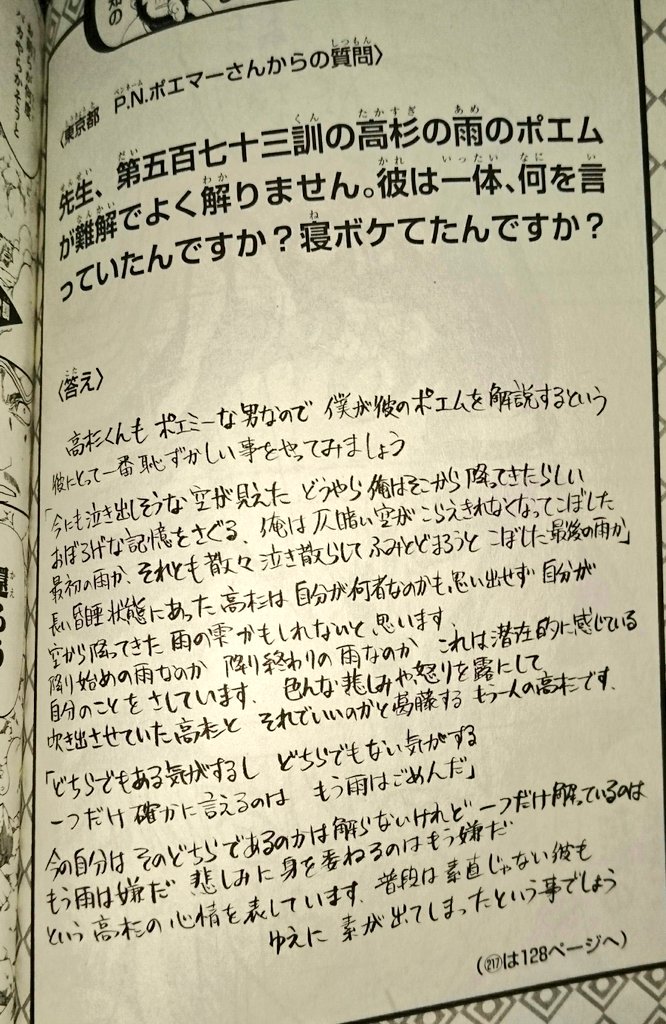 〈東京都 P.N.ポエマーさんからの質問〉
先生、第五百七十三訓の高杉の雨のポエム
が難解でよく解りません。彼は一体、何を言
っていたんですか？寝ボケてたんですか？
〈答え〉
高杉くんも ポエミーな男なので 僕が彼のポエムを解説するという
彼にとって一番恥ずかしい事をやってみましょう
「今にも泣き出しそうな空が見えた どうやら俺はそこから降ってきたらしい
おぼろげな記憶をさぐる、俺は仄暗い空がこらえきれなくなってこぼした
最初の雨か、それとも散々泣き散らしてふみとどまろうとこぼした最後の雨か」
長い昏睡状態にあった高杉は自分が何者なのかも思い出せず 自分が
空から降ってきた雨の雫かもしれないと思います、
降り始めの雨なのか 降り終わりの雨なのか これは潜在的に感じている
自分のことをさしています、色んな悲しみや怒りを露にして
吹き出させていた高杉と それでいいのかと葛藤する もう一人の高杉です、
「どちらでもある気がするし どちらでもない気がする
一つだけ確かに言えるのは もう雨はごめんだ」
今の自分は そのどちらであるのかは解らないけれど 一つだけ解っているのは
もう雨は嫌だ 悲しみに身を委ねるのはもう嫌だ
という高杉の心情を表しています、普段は素直じゃない彼も
ゆえに 素が出てしまったという事でしょう
(217は128ページへ)